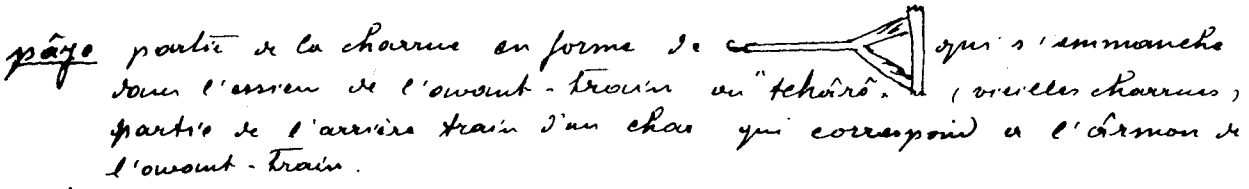 pâje partie de la charrue en forme de qui s'emmanche
dans l'essieu de l'avant-train ou "tchârô". (vieilles charrues,
partie de l'arrière train d'un char qui correspond à l'ârmon de
l'avant-train.